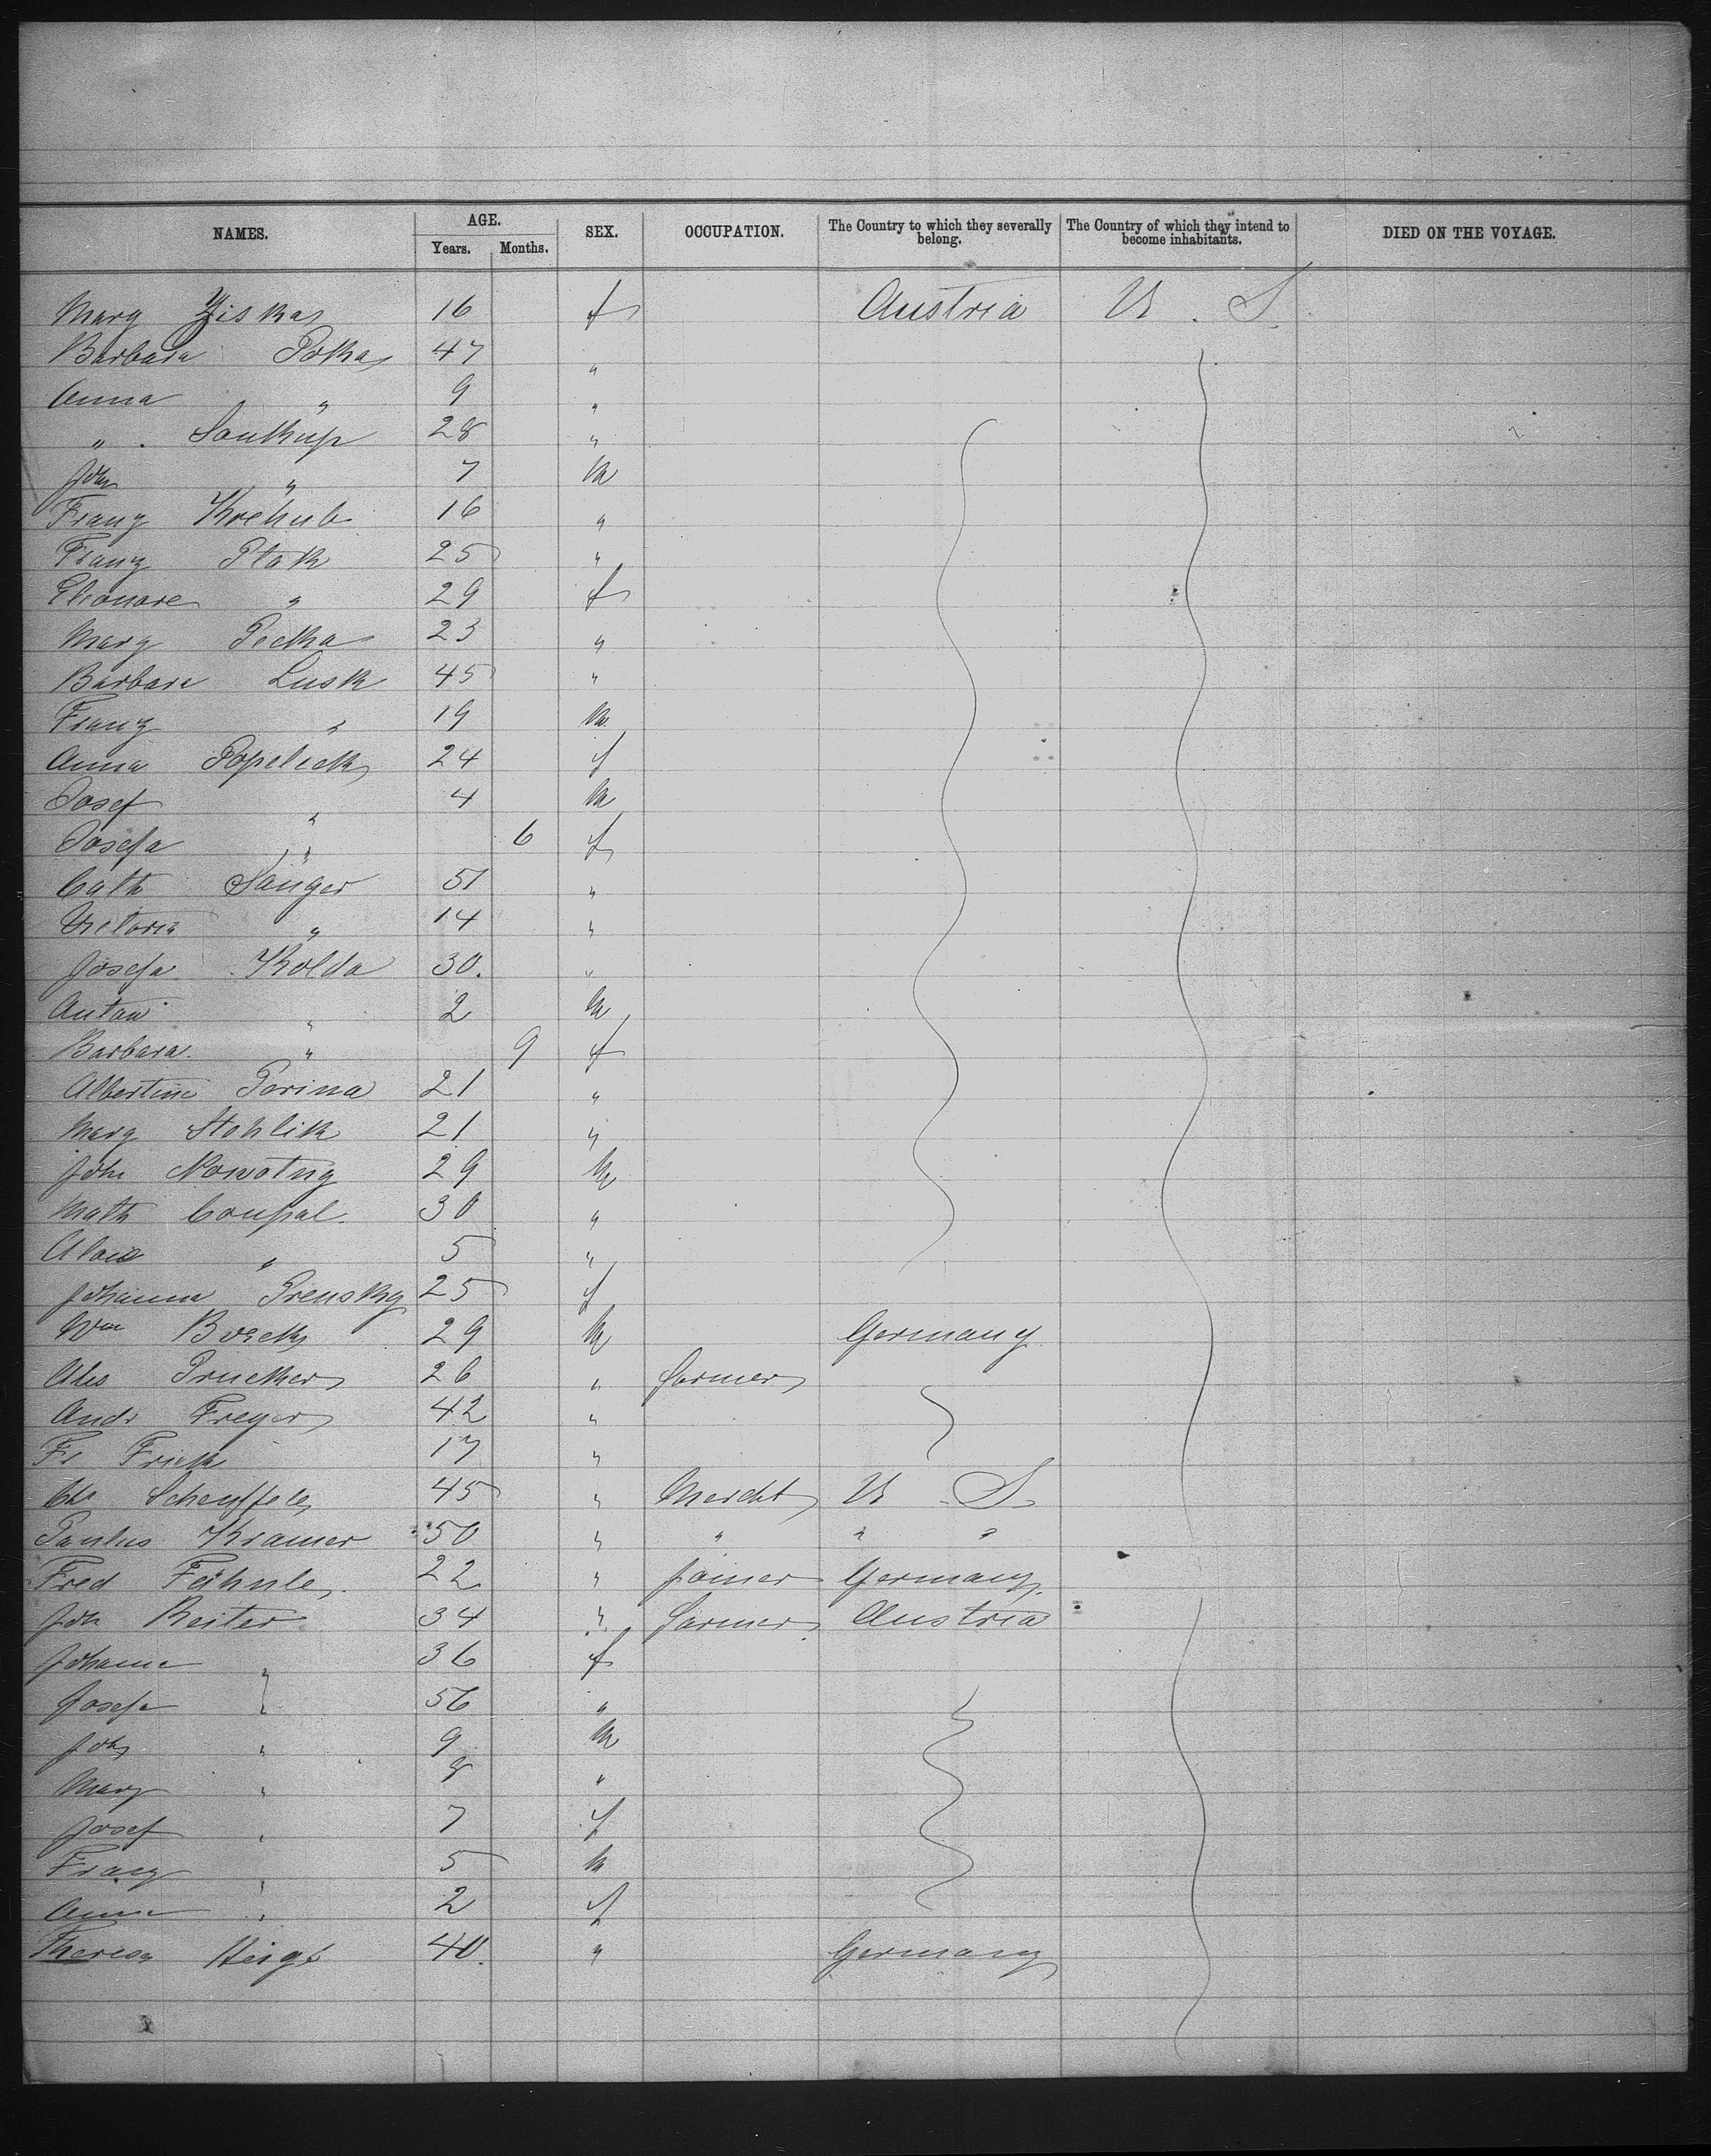 NAMES. AGE. Years. Months. SEX. OCCUPATION. The Country to which they severally belong. The Country of which they intend to become inhabitants. DIED ON THE VOYAGE.
Mary Ziska 16 f Austria U. S.
Barbara Poka 47 "
Anna " 9 "
" Soukup 28 "
Joh " 7 m
Franz Krehub 16 "
Franz Ptak 25 "
Eleonore " 29 f
Mary Pecka 23 "
Barbara Lusk 45 "
Franz " 19 m
Anna Popelick 24 f
Josef " 4 m
Josefa " 6 f
Cath Sänger 51 "
Victoria " 14 "
Josefa Kolda 30. "
Anton " 2 m
Barbara. " 9 f
Albertine Porina 21 "
Mary Stohlik 21 "
John Nowotny 29 m
Math Coupal. 30 "
Alois " 5 "
Johanna Prensky 25 f
Wm 29 m Germany
Prucker 26 " farmer
Andr Freyer 42 "
Fr Frick 17 "
Chr Scheuffele 45 " Mercht U. S.
Paulus Kramer 50 " " " "
Fred Fähnle 22 " joiner Germany
Joh Reiter 34 " farmer Austria
Johanna " 36 f
Josefa " 56 "
Joh " 9 m
Mary " 8 "
Josef " 7 f
Franz " 5 m
Anna " 2 f
Theresa 40. " Germany